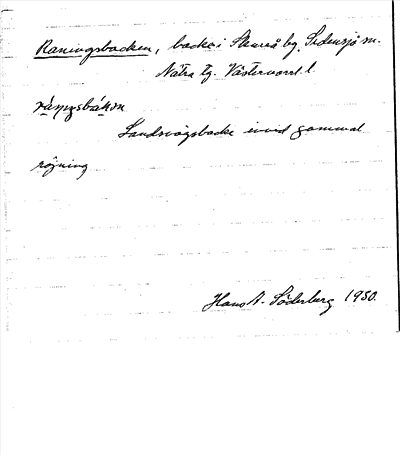 Raningsbacken, backe i Skureå by, Sidensjö sn.
Nätra tg. Västernorrl. l.
ràṇiŋsbákən
Landsvägsbacke invid gammal
röjning
Hans A. Söderberg 1930.